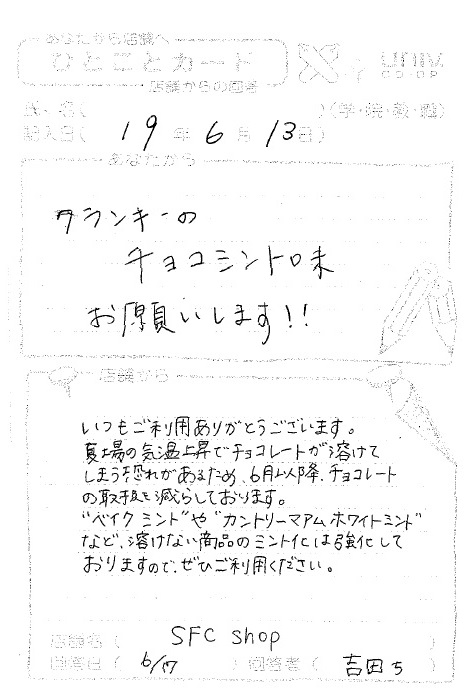 あなたから店舗へ
ひとことカード
店舗からの回答
univ.
CO-OP
氏・名( )(学・院・教・職)
記入日( 19年6月13日)
あなたから
クランキーの
チョコミント味
お願いします!!
店舗から
いつもご利用ありがとうございます。
夏場の気温上昇でチョコレートが溶けて
しまう恐れがあるため、6月以降、チョコレート
の取扱を減らしております。
"ベイクミント"や"カントリーマアムホワイトミント"
など、溶けない商品のミント化は強化して
おりますので、ぜひご利用ください。
店舗名( SFC shop )
回答日( 6/17 ) 回答者( 吉田 )